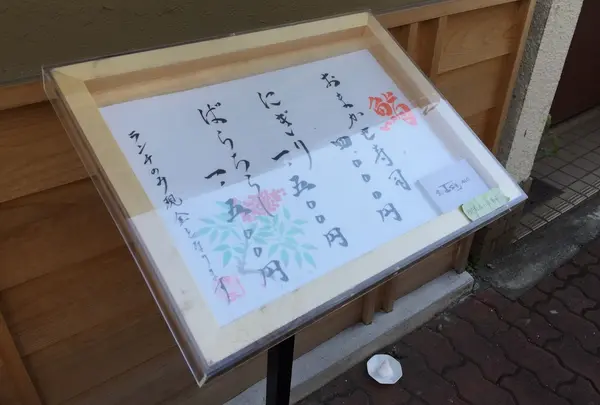 鮨
おまかせ寿司
四.〇〇〇円
にぎり
一.五〇〇円
ばらちらし
一.五〇〇円
ランチのみ現金となります